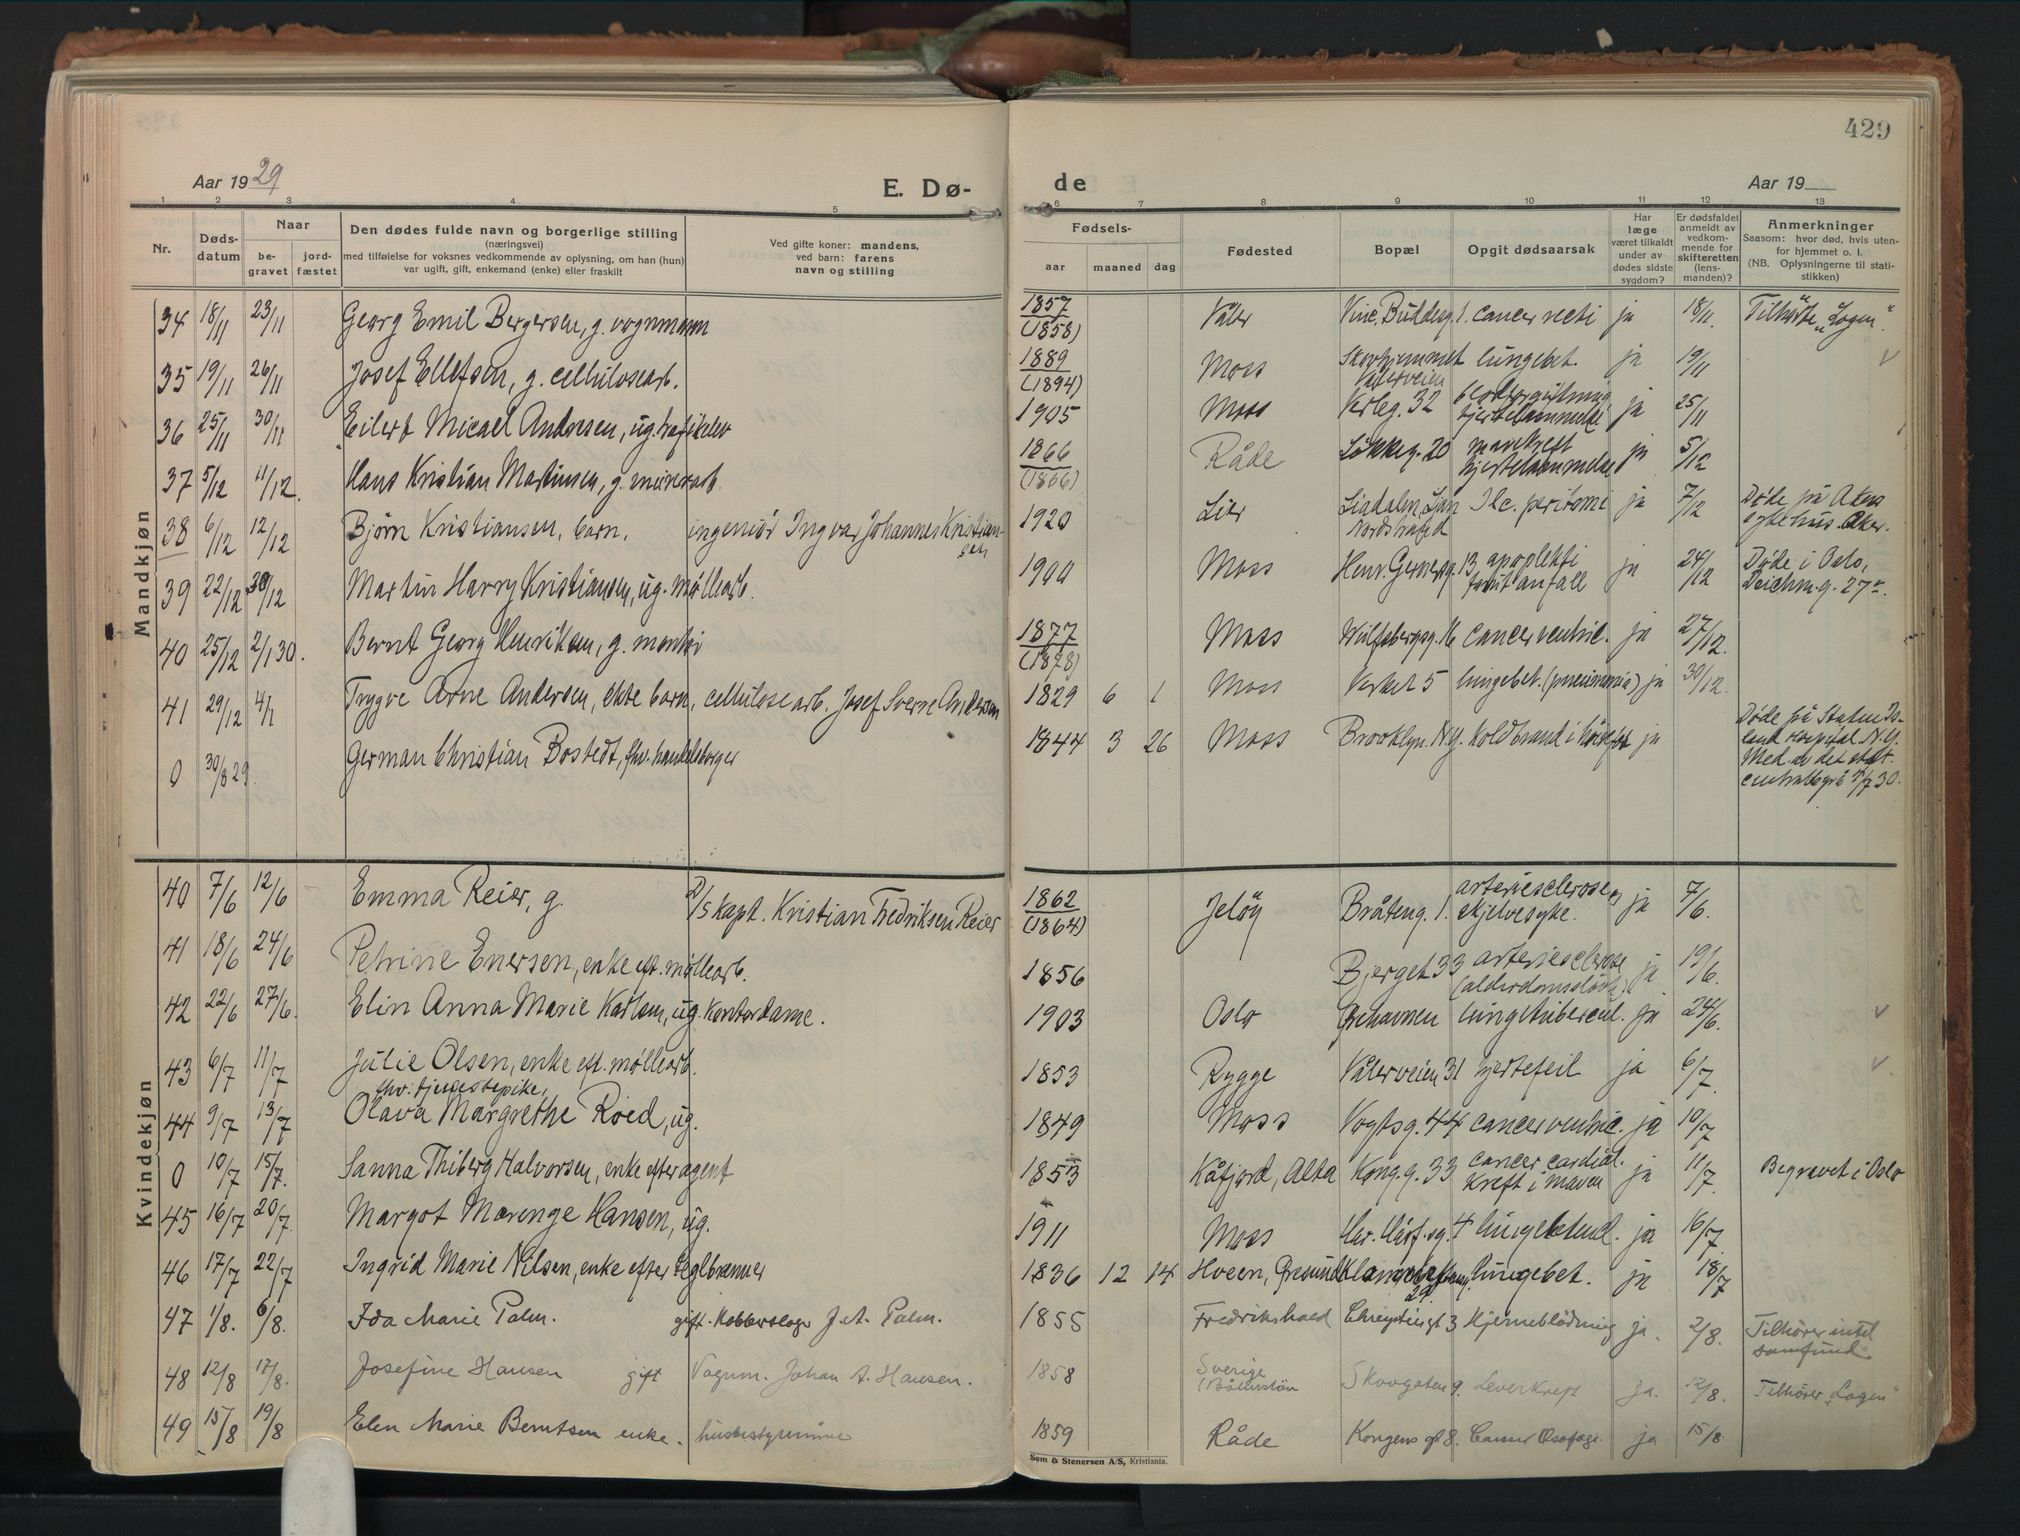 429
Aar 1929
E. Dø-
de
Aar 19
1 2 3 4 5 6 7 8 9 10 11 12 13
Nr.
Døds-
datum
Naar
be-
gravet
jord-
fæstet
Den dødes fulde navn og borgerlige stilling
(næringsvei)
med tilføielse for voksnes vedkommende av oplysning, om han (hun)
var ugift, gift, enkemand (enke) eller fraskilt
Ved gifte koner: mandens,
ved barn: farens
navn og stilling
Fødsels-
aar maaned dag
Fødested
Bopæl
Opgit dødsaarsak
Har
læge
været tilkaldt
under av-
dødes sidste
sygdom?
Er dødsfaldet
anmeldt av
vedkom-
mende for
skifteretten
(lens-
manden)?
Anmerkninger
Saasom: hvor død, hvis uten-
for hjemmet o. l.
(NB. Oplysningerne til stati-
stikken)
Mandkjøn
34 18/11 23/11 Georg Emil Bergersen, g. vognmann 1857 (1858) Våler Vinc. Buddeg. 1. cancer recti ja 18/11. Tilhørte „Logen“.
35 19/11 26/11 Josef Ellefsen, g. cellulosearb. 1889 (1894) Moss Våterveien lungebet. ja 19/11
36 25/11 30/11 Eilert Micael Andresen, ug. 1905 Moss Verleg. 32 blodforgiftning ja 25/11
37 5/12 11/12. Hans Kristian Martinsen, g. murerarb. 1866 (1866) Råde Løkkeg. 20 mavekreft ja 5/12
38 6/12 12/12 Bjørn Kristiansen, barn. ingeniør Ingvar Johannes Kristian-
sen 1920 Lier Ljan Nordstrand ja 7/12 Døde på Akers
sykehus. Aker.
39 22/12 30/12 Martin Harry Kristiansen, ug. møllearb. 1900 Moss Henr. Gernersg. 13 apoplekti
anfall ja 24/12 Døde i Oslo,
Deichm.g. 27
40 25/12 2/1 30. Bernt Georg Henriksen, g. montør 1877 (1878) Moss Wulfsbergsg. 16 cancer ventric. ja 27/12.
41 29/12 4/1 Trygve Arne Andersen, ekte barn, cellulosearb. Josef Sverre Andersen 1829 6 1 Moss Verket 5 lungebet. (pneumonia) ja 30/12.
0 30/8 29. German Christian Bostedt, fhv. handelsborger 1844 3 26 Moss Brooklyn. N.Y. koldbrand i ja Døde på Staten Is-
land hospital N.Y.
Med. av det stat.
7/7 30.
Kvindekjøn
40 7/6 12/6 Emma Reier, g. D/S kapt. Kristian Fredriksen Reier 1862 (1864) Jeløy Bråteng. 1. arteriesclerose,
skjelvesyke. ja 7/6.
41 18/6 24/6 Petrine Enersen, enke eft. møllearb. 1856 Bjerget 33 arteriesclerose ja 19/6.
42 22/6 27/6. Elin Anna Marie Karlsen, ug. kontordame. 1903 Oslo Orehavnen lungetubercul. ja 24/6.
43 6/7 11/7 Julie Olsen, enke eft. møllearb. 1853 Rygge Vålerveien 31 hjertefeil ja 6/7.
fhv. tjenestepike,
44 9/7 13/7 Olava Margrethe Roed, ug. 1849 Moss Vogtsg. 44 cancer ventric. ja 10/7
0 10/7 15/7. Sanna Thiberg Halvorsen, enke efter agent 1853 Kåfjord, Alta Kong.g. 33 cancer cardial.
kreft i maven ja 11/7. Begravet i Oslo
45 16/7 20/7. Margot Marenge Hansen, ug. 1911 Moss Har. Hårf.sg. 4 ja 16/7.
46 17/7 22/7 Ingrid Marie Nilsen, enke efter teglbrenner 1836 12 14 Hveen, Øresund 29. lungebet. ja 18/7
47 1/8. 6/8. Ida Marie Palm. gift. Kobberslager J. A. Palm. 1855 Fredrikshald Chrystiesgt 3 Hjerneblödning ja. 2/8. Tilhører intet
samfund
48 12/8 17/8. Josefine Hansen gift Vognm. Johan A. Hansen. 1858 Sverige Skovgaten 9. Leverkreft ja. 12/8. Tilhører „Logen“
49 15/8 19/8 Elen Marie Berntsen enke. husbestyrerinne 1859 Råde Kongens gt 8. Cancer Øsofagi ja 15/8
Sem & Stenersen A/S, Kristiania.